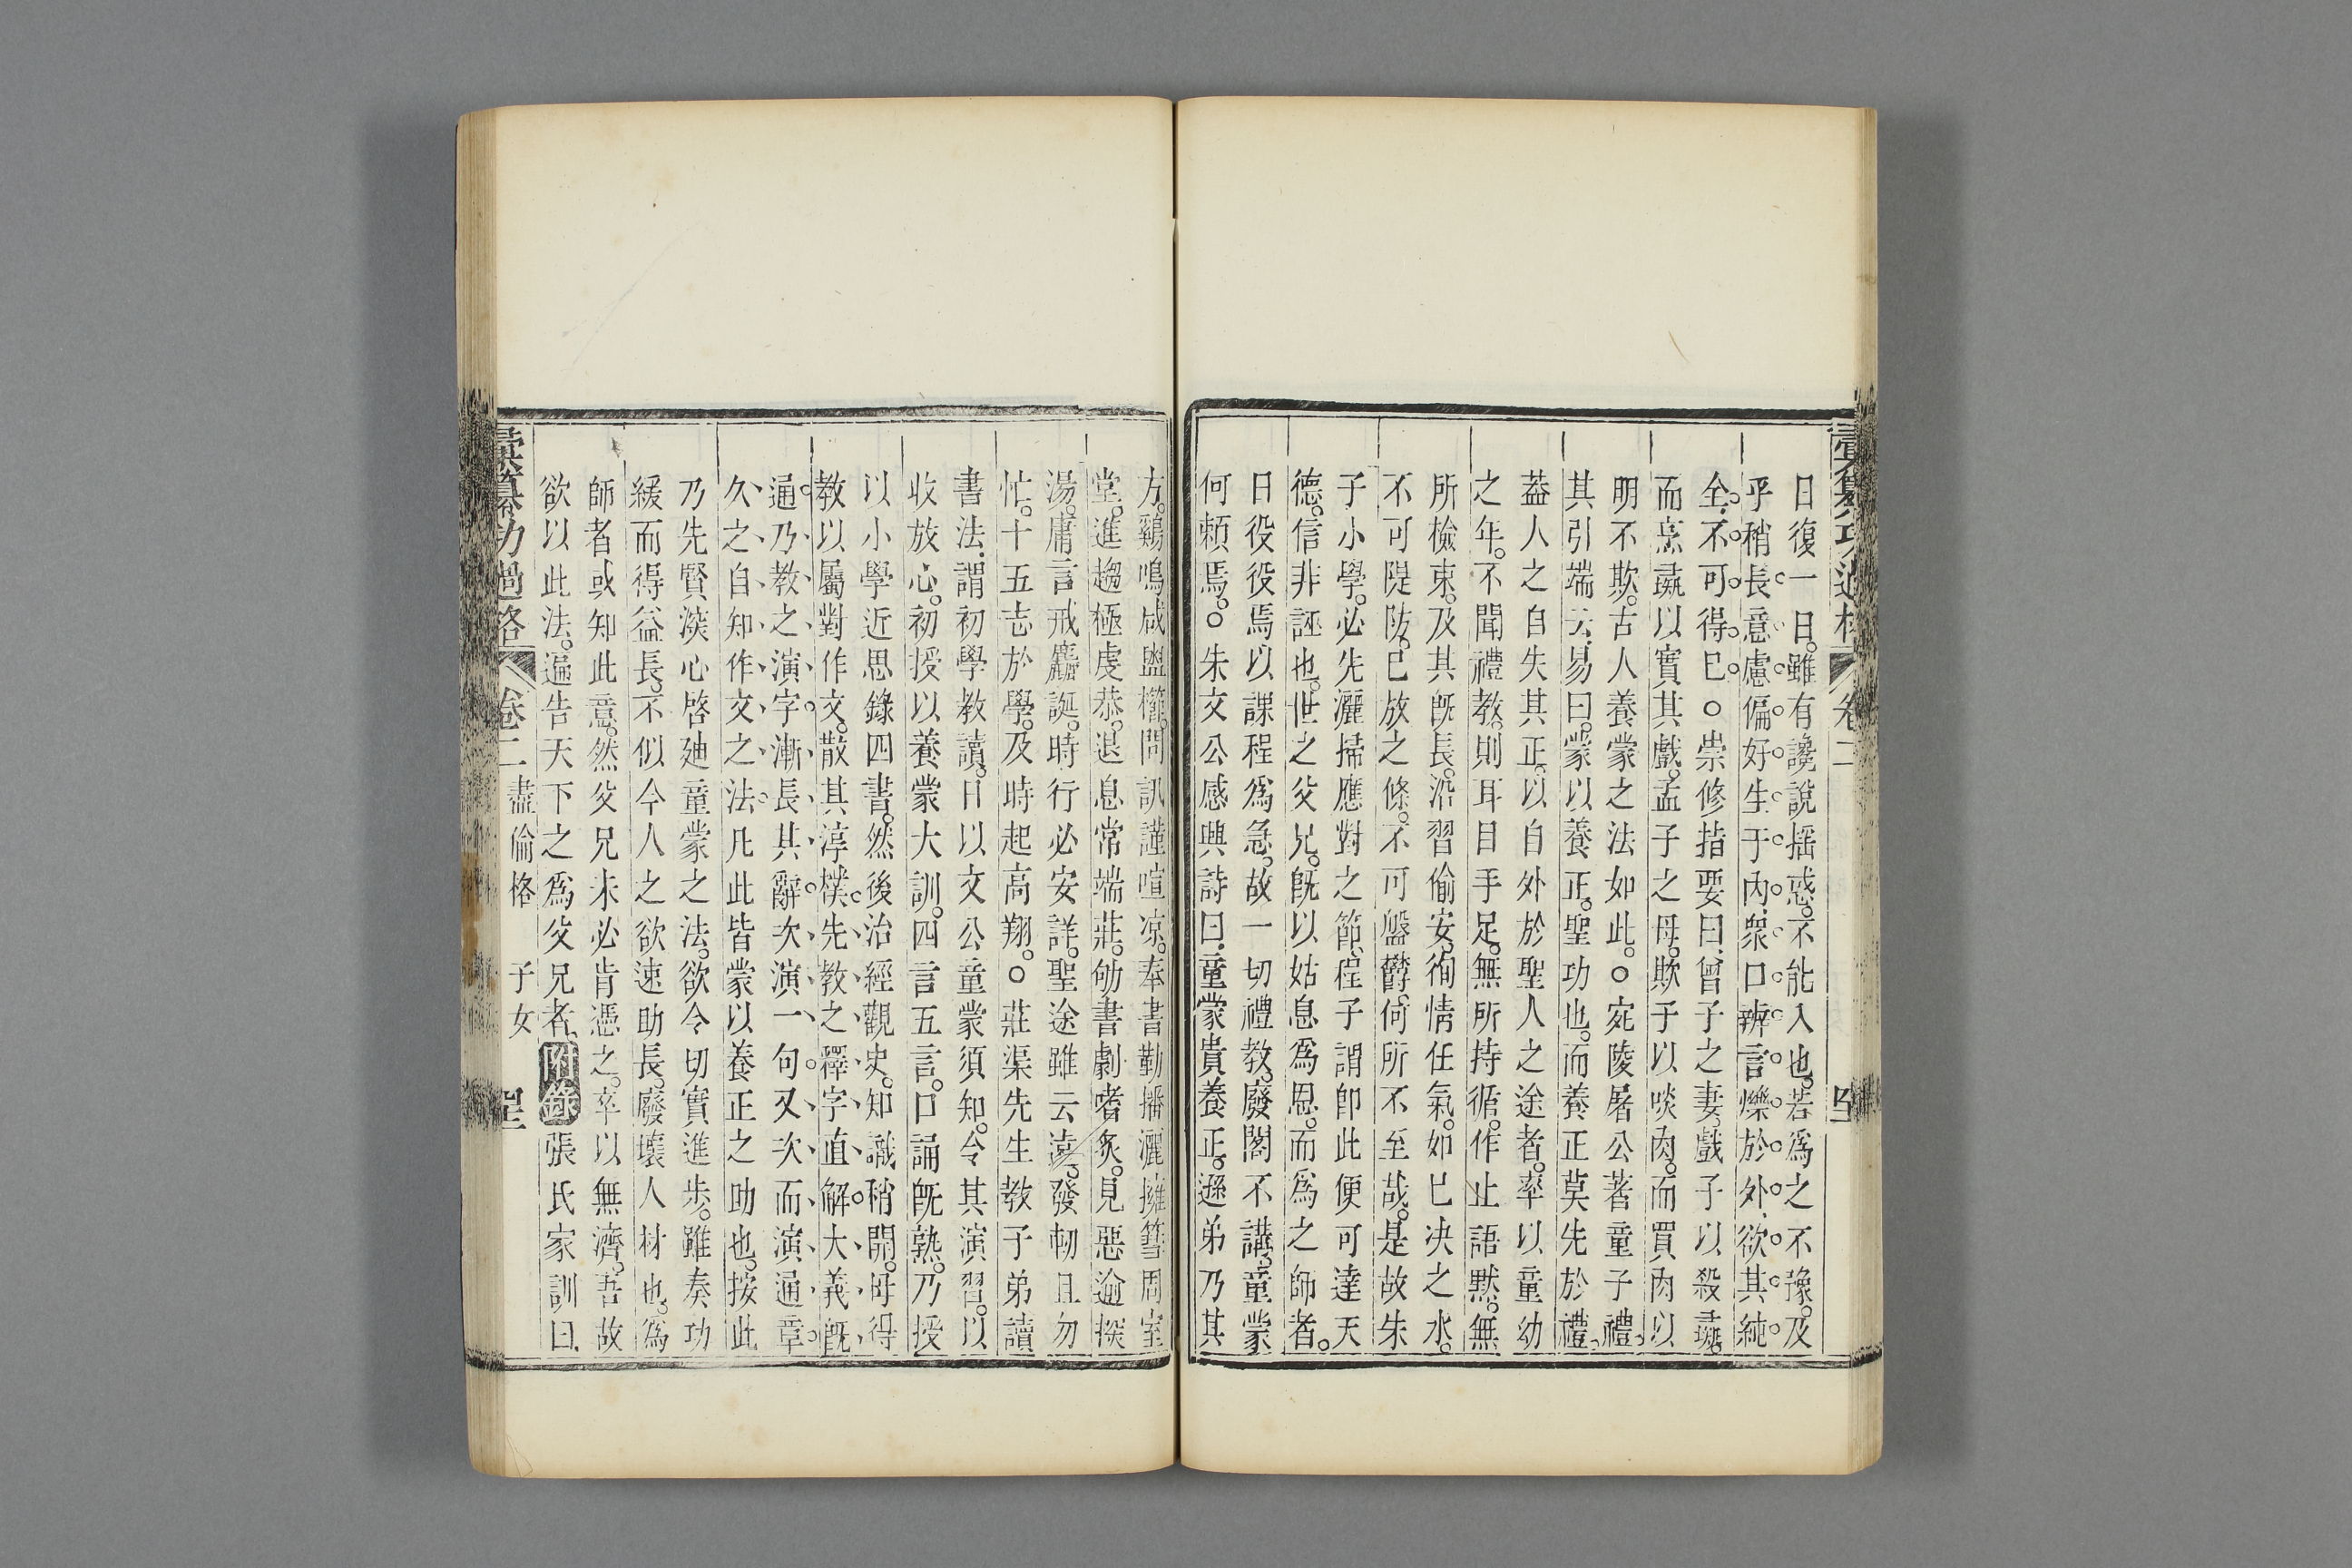 日復一日。雖有讒說揺惑。不能入也。若爲之不豫。及
乎稍長。意慮偏好生于內。衆口辨言爍於外。欲其純
全。不可得巳。○崇修指要曰。曾子之妻。戲子以殺彘。
而烹彘以實其戲。孟子之母。欺子以啖肉。而買肉以
明不欺。古人養蒙之法如此。○宛陵屠公著童子禮。
其引端云。易曰。蒙以養正。聖功也。而養正莫先於禮。
葢人之自失其正。以自外於聖人之途者。率以童幼
之年。不聞禮教。則耳目手足。無所持循。作止語默。無
所檢束。及其旣長。沿習偷安。徇情任氣。如巳决之水。
不可隄防。巳放之條。不可盤欝。何所不至哉。是故朱
子小學。必先灑掃應對之節。程子謂卽此便可達天
德。信非誣也。世之父兄。旣以姑息爲恩。而爲之師者。
日役役焉以課程爲急。故一切禮教。廢閣不講。童蒙
何頼焉。○朱文公感興詩曰。童蒙貴養正。遜弟乃其
方。鷄鳴咸盥櫛。問訊謹暄凉。奉書勤播灑。擁篲周室
堂。進趨極虔恭。退息常端莊。劬書劇嗜炙。見惡逾探
湯。庸言戒麤誕。時行必安詳。聖途雖云遠。發軔且勿
忙。十五志於學。及時起高翔。○莊渠先生教子弟讀
書法。謂初學教讀。日以文公童蒙須知。令其演習。以
收放心。初授以養蒙大訓。四言五言。口誦旣熟。乃授
以小學近思錄四書。然後治經觀史。知識稍開。毋得
教以屬對作文。散其淳樸。先教之釋字直解。大義旣
通。乃教之演字。漸長其辭。次演一句。又次而演通章。
久之自知作文之法。凡此皆蒙以養正之助也。按此
乃先賢深心啓廸童蒙之法。欲令切實進步。雖奏功
緩而得益長。不似今人之欲速助長。廢壞人材也。爲
師者或知此意。然父兄未必肯憑之。率以無濟。吾故
欲以此法。遍告天下之爲父兄者。附錄張氏家訓曰。
彙纂功過格 卷二 盡倫格 子女